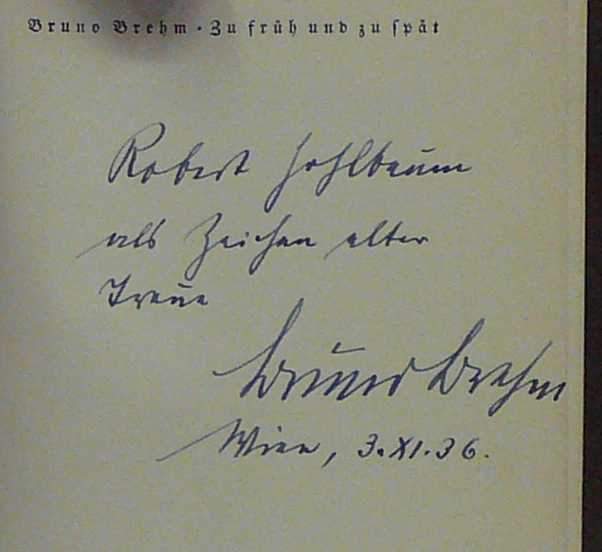 Bruno Brehm · Zu früh und zu spät
Robert Hohlbaum
als Zeichen alter
Treue
Bruno Brehm
Wien, 3.XI.36.